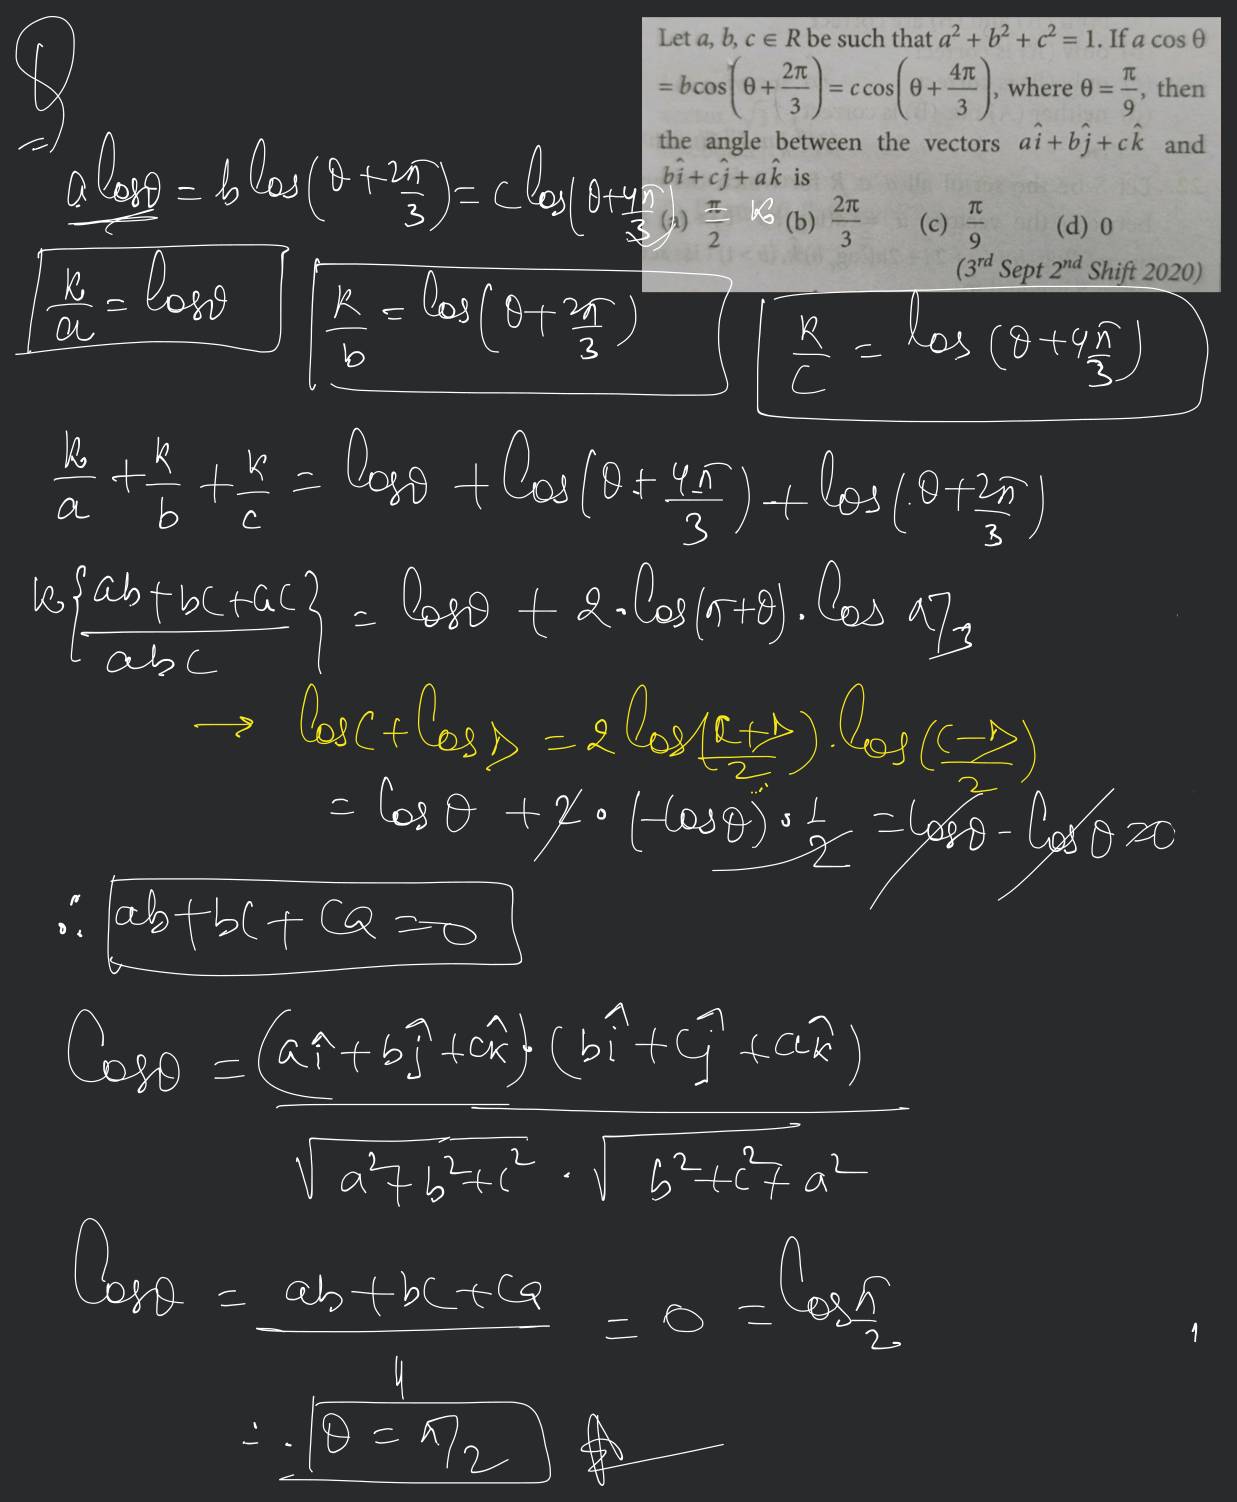 Q
Let a, b, c ∈ R be such that a² + b² + c² = 1. If a cos θ
= bcos(θ + 2π/3) = c cos(θ + 4π/3), where θ = π/9, then
the angle between the vectors aî + bĵ + ck̂ and
bî + cĵ + ak̂ is
(a) π/2 (b) 2π/3 (c) π/9 (d) 0
(3rd Sept 2nd Shift 2020)
a cosθ = b cos(θ + 2π/3) = c cos(θ + 4π/3) = k
k/a = cosθ
k/b = cos(θ + 2π/3)
k/c = cos(θ + 4π/3)
k/a + k/b + k/c = cosθ + cos(θ + 4π/3) + cos(θ + 2π/3)
k{(ab + bc + ac)/abc} = cosθ + 2·cos(π+θ)·cos π/3
→ cosC + cosD = 2cos((C+D)/2)·cos((C-D)/2)
= cosθ + 2·(-cosθ)·1/2 = cosθ - cosθ = 0
∴ ab + bc + ca = 0
Cosθ = (aî + bĵ + ck̂)·(bî + cĵ + ak̂)
√a² + b² + c² · √b² + c² + a²
Cosθ = (ab + bc + ca)/4 = 0 = cos π/2
∴ θ = π/2